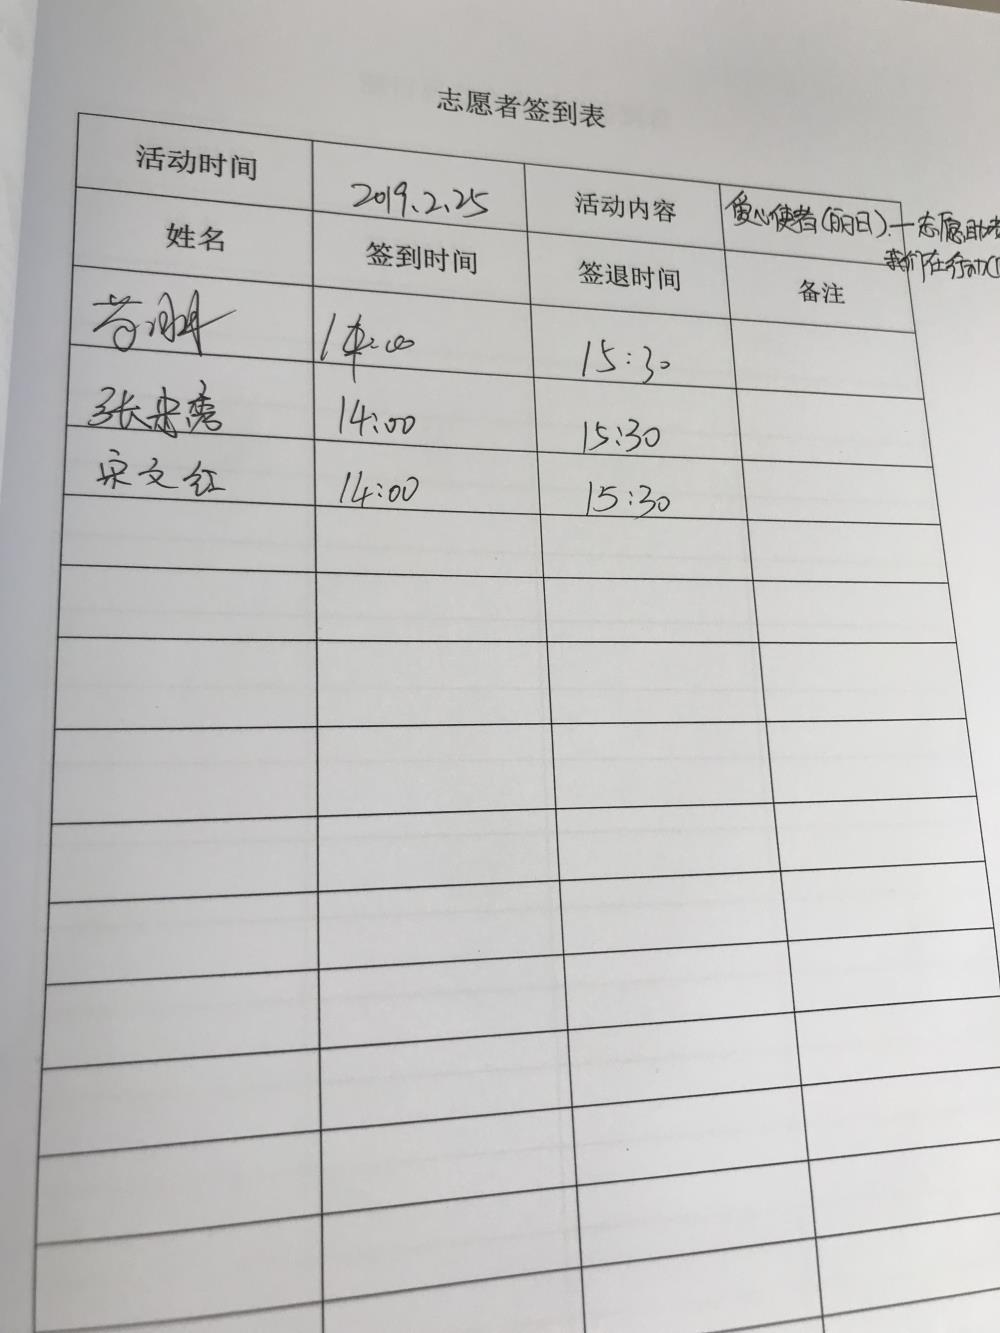 志愿者签到表
活动时间 2019.2.25 活动内容 爱心使者(丽日)—志愿助
我们在行动
姓名 签到时间 签退时间 备注
14:00 15:30
张 秀 14:00 15:30
宋文红 14:00 15:30